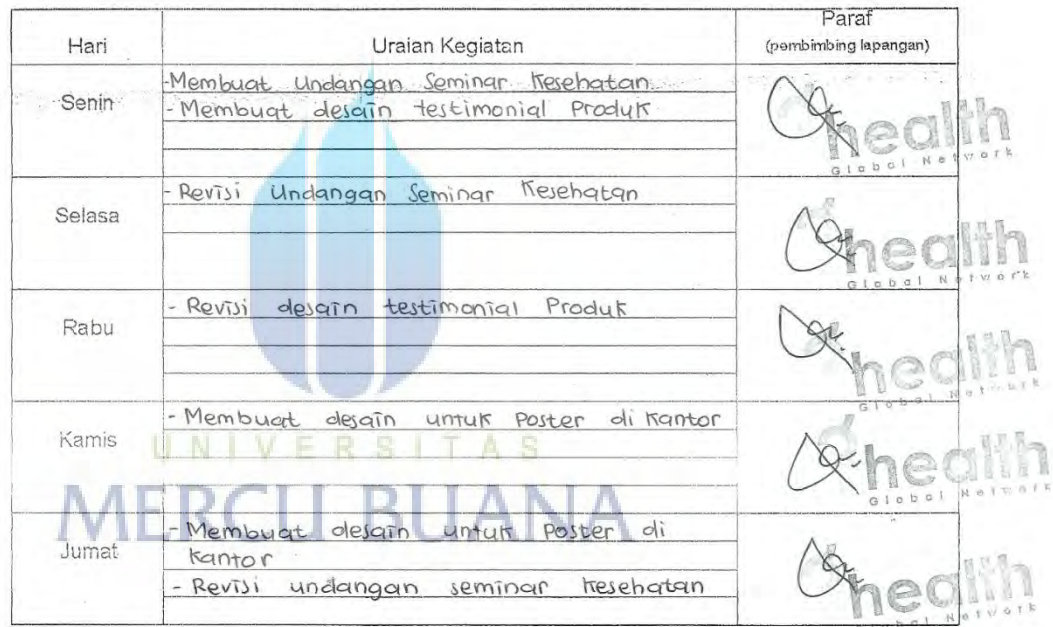 Hari Uraian Kegiatan Paraf
(pembimbing lapangan)
Senin
-Membuat Undangan Seminar Kesehatan
- Membuat desain testimonial Produk
health
Global Network
Selasa
- Revisi Undangan Seminar Kesehatan
health
Global Network
Rabu
- Revisi desain testimonial Produk
health
Global Network
Kamis
- Membuat desain untuk Poster di Kantor
health
Global Network
UNIVERSITAS
MERCU BUANA
Jumat
- Membuat desain untuk Poster di
Kantor
- Revisi undangan seminar kesehatan
health
Global Network